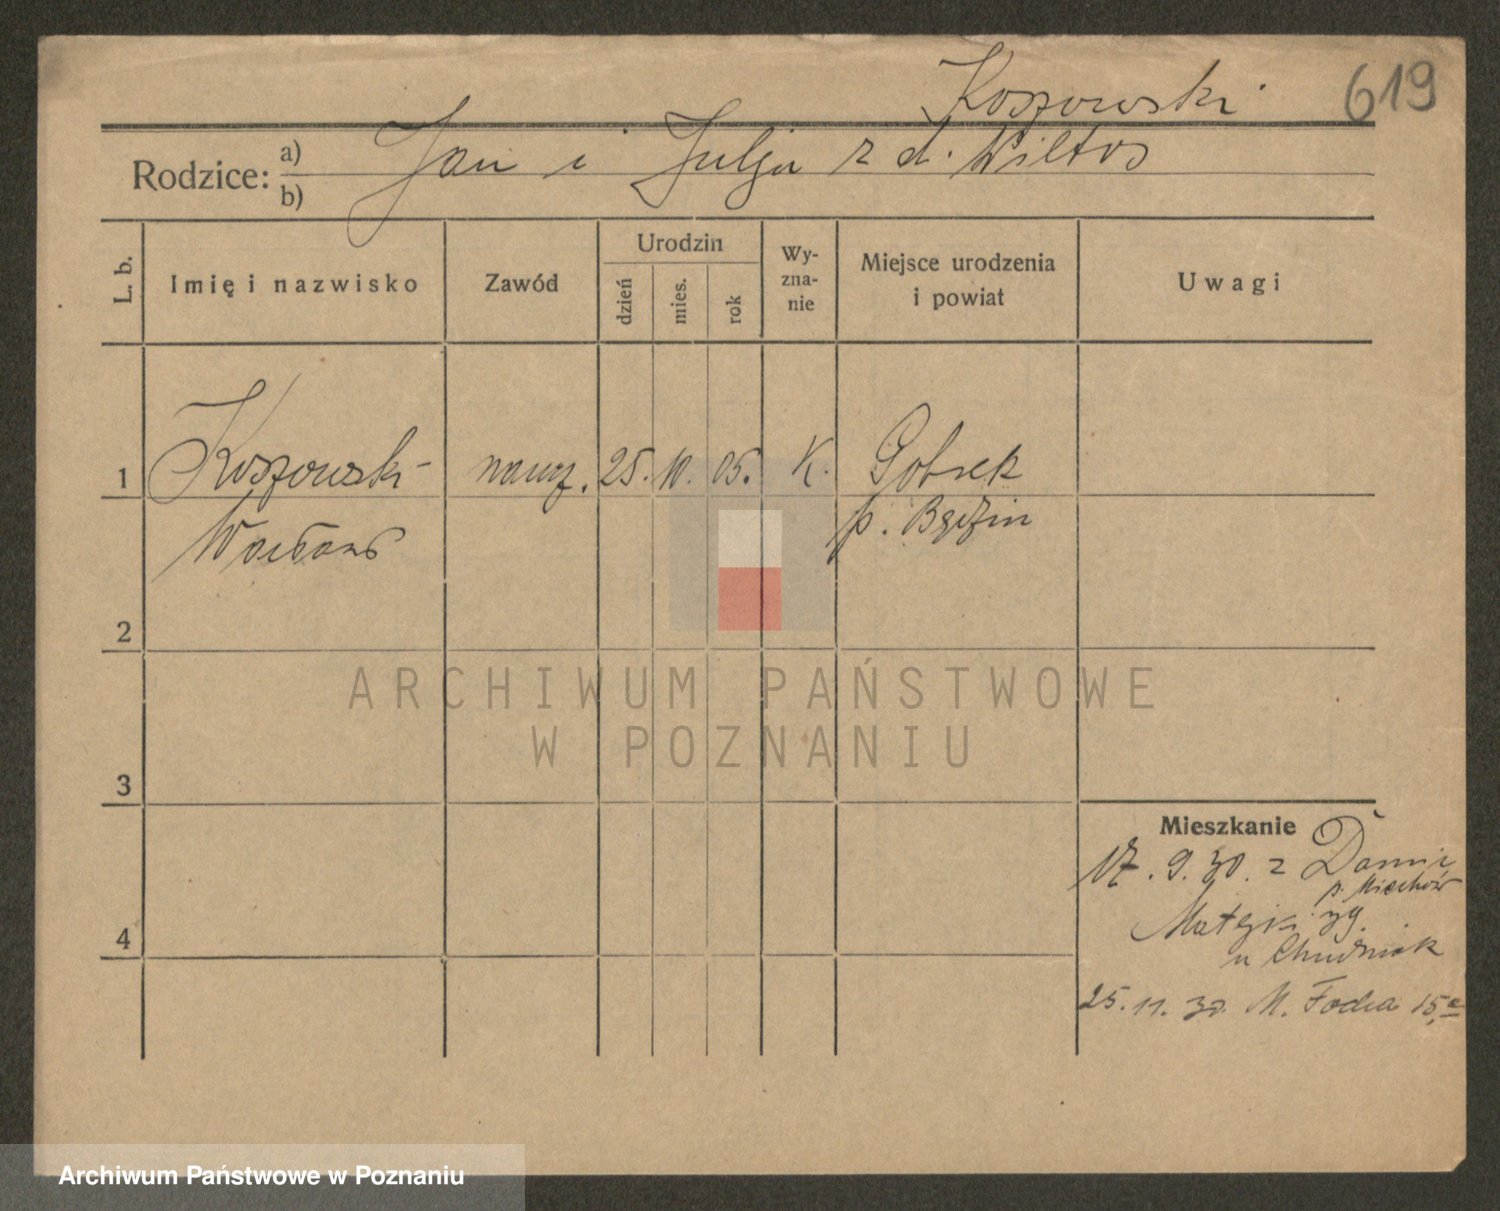 Koszowski
619
Rodzice: a) b)
Jan i Julja z d. Wiltos
L. b.
Imię i nazwisko
Zawód
Urodzin
dzień
mies.
rok
Wy-
zna-
nie
Miejsce urodzenia
i powiat
Uwagi
1
Koszowski naucz. 25. 10. 05. K.
Wacław
p. Będzin
2
3
4
Mieszkanie
17. 9. 30. z
p. Miechów
Matejki 39.
u Chudziak
25. 11. 30. M. Focha 15
ARCHIWUM PAŃSTWOWE
W POZNANIU
Archiwum Państwowe w Poznaniu